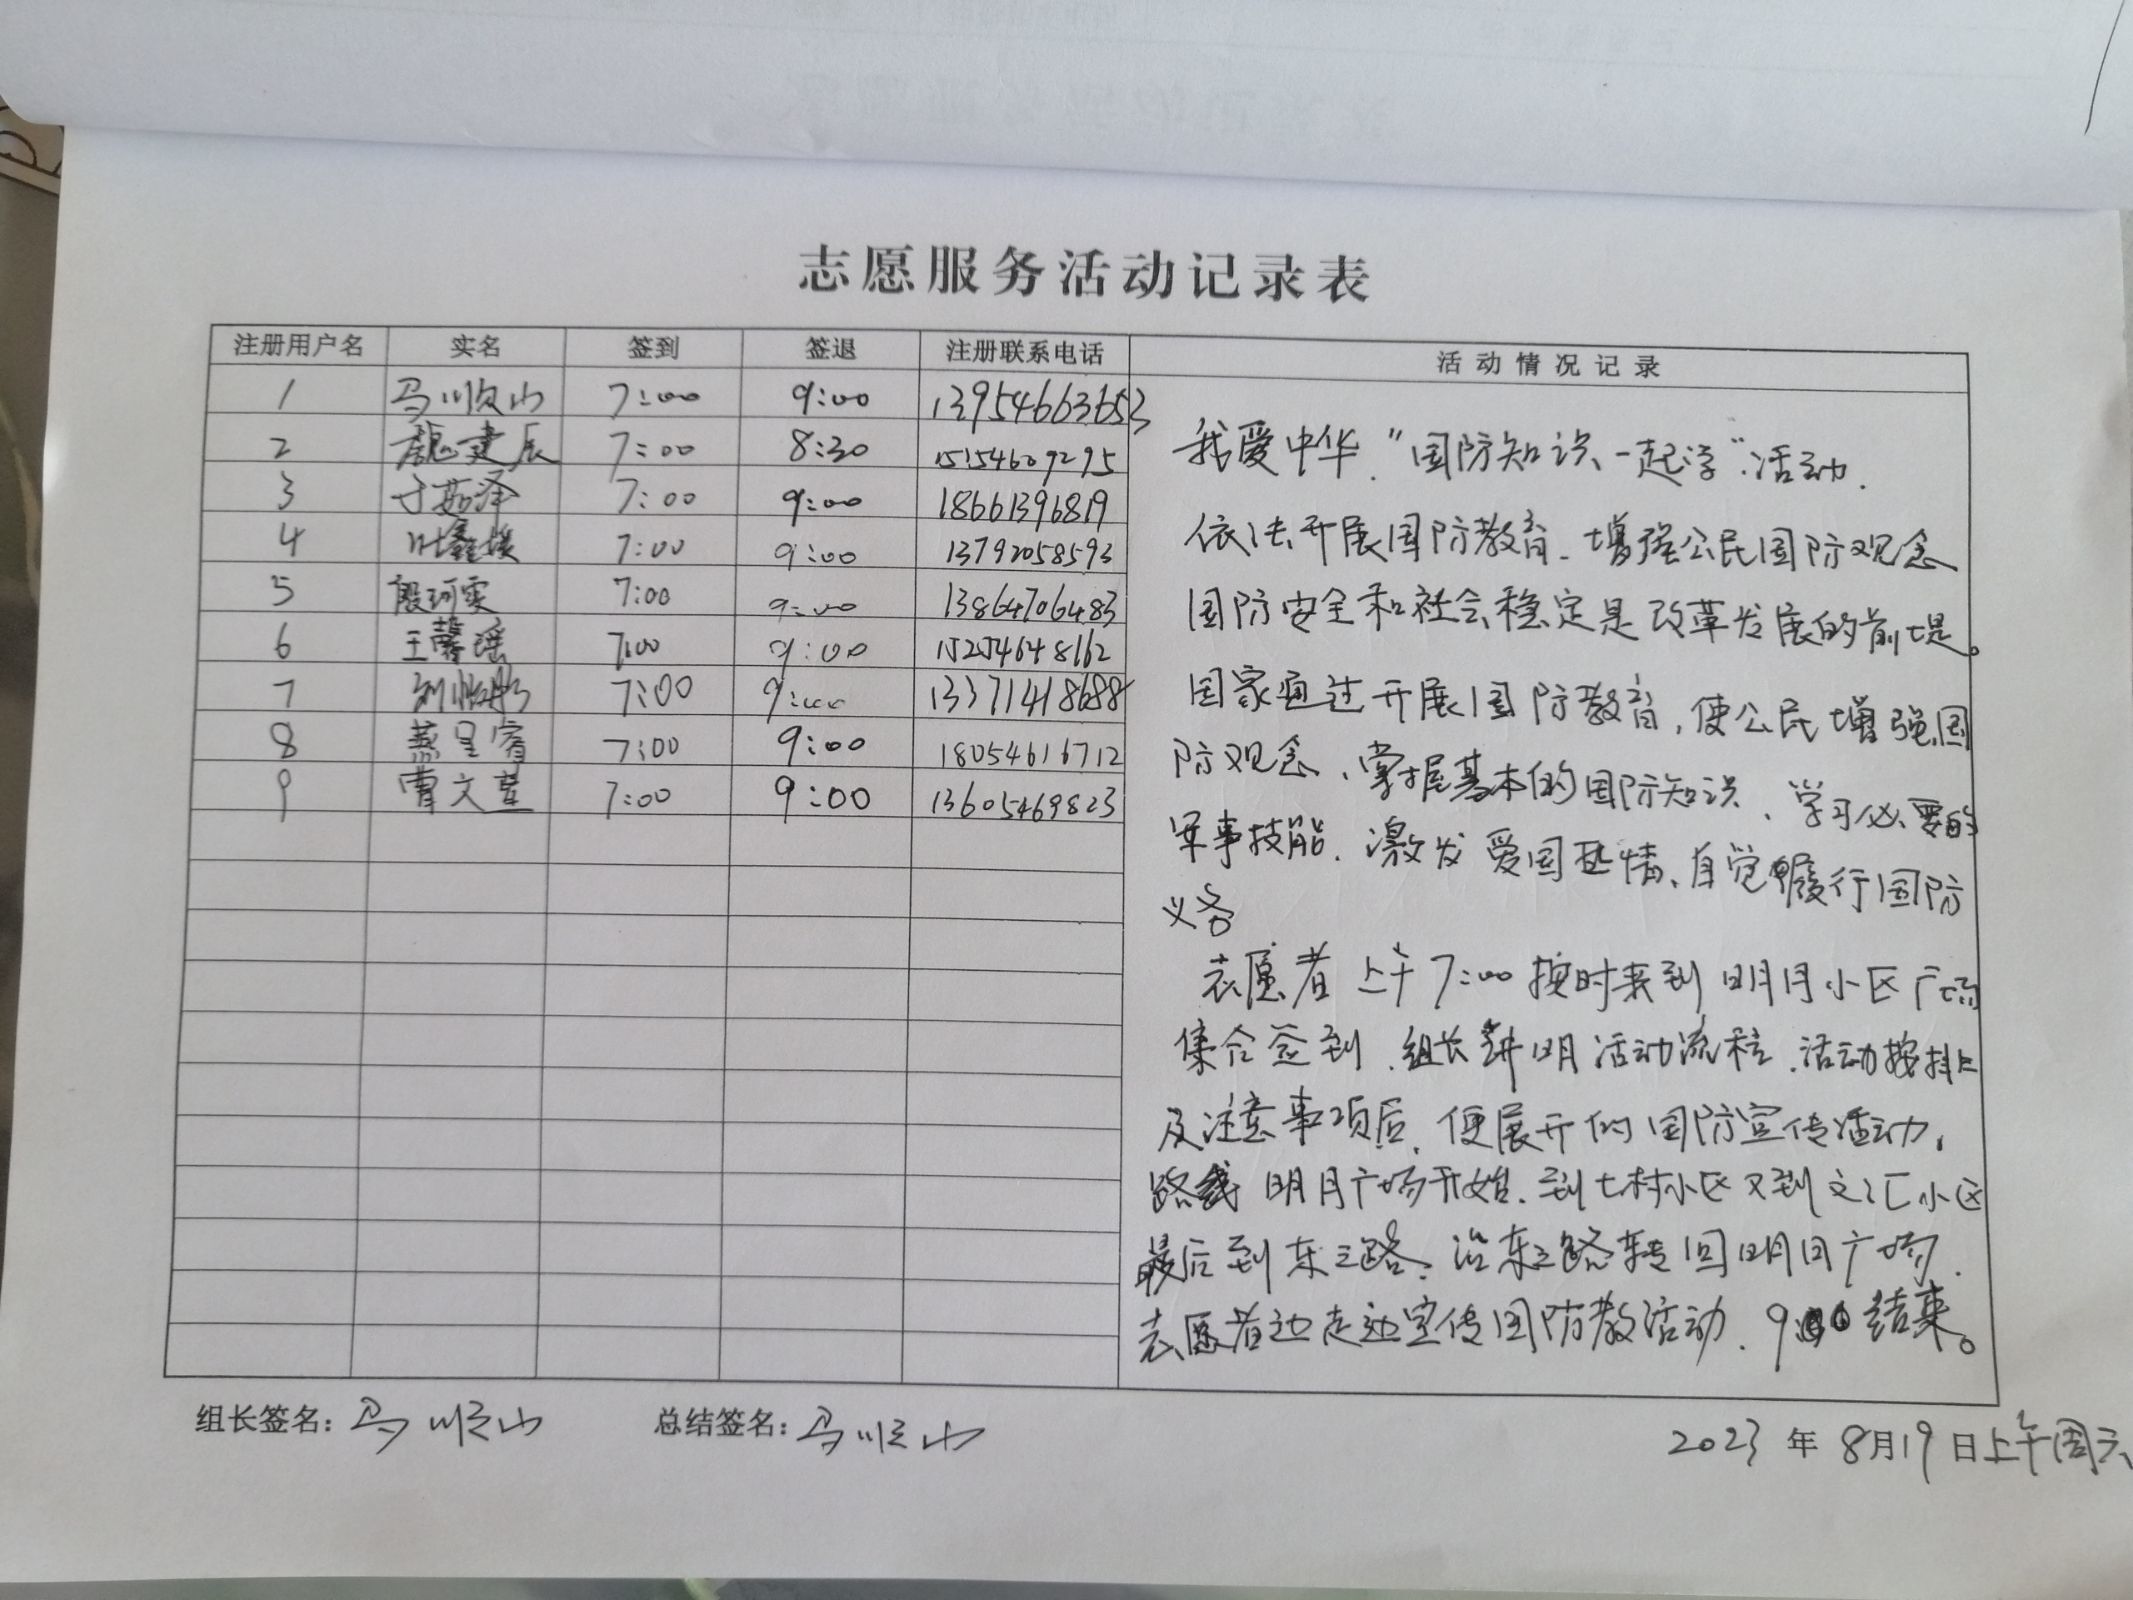 志愿服务活动记录表
注册用户名 实名 签到 签退 注册联系电话 活动情况记录
1 马顺山 7:00 9:00 13954663653
2 魏建辰 7:00 8:30 15154609295
3 于茹泽 7:00 9:00 18661396819
4 7:00 9:00 13792058593
5 殷珂雯 7:00 9:00 13864706483
6 王馨瑶 7:00 9:00 15254648162
7 7:00 9:00 13371418688
8 燕呈睿 7:00 9:00 18054616712
9 曹文萱 7:00 9:00 13605469823
我爱中华."国防知识一起学"活动.
依法开展国防教育.增强公民国防观念
国防安全和社会稳定是改革发展的前堤。
国家通过开展国防教育,使公民增强国
防观念、掌握基本的国防知识、学习必要的
军事技能、激发爱国热情、自觉履行国防
义务
志愿者上午7:00按时来到明月小区广场
集合签到.组长讲明活动流程.活动按排
及注意事项后,便展开的国防宣传活动,
路线明月广场开始.到七村小区又到文汇小区
最后到东三路.沿东三路转回明月广场.
志愿者边走边宣传国防教活动.9:00结束。
组长签名:马顺山 总结签名:马顺山
2023年8月19日上午周六